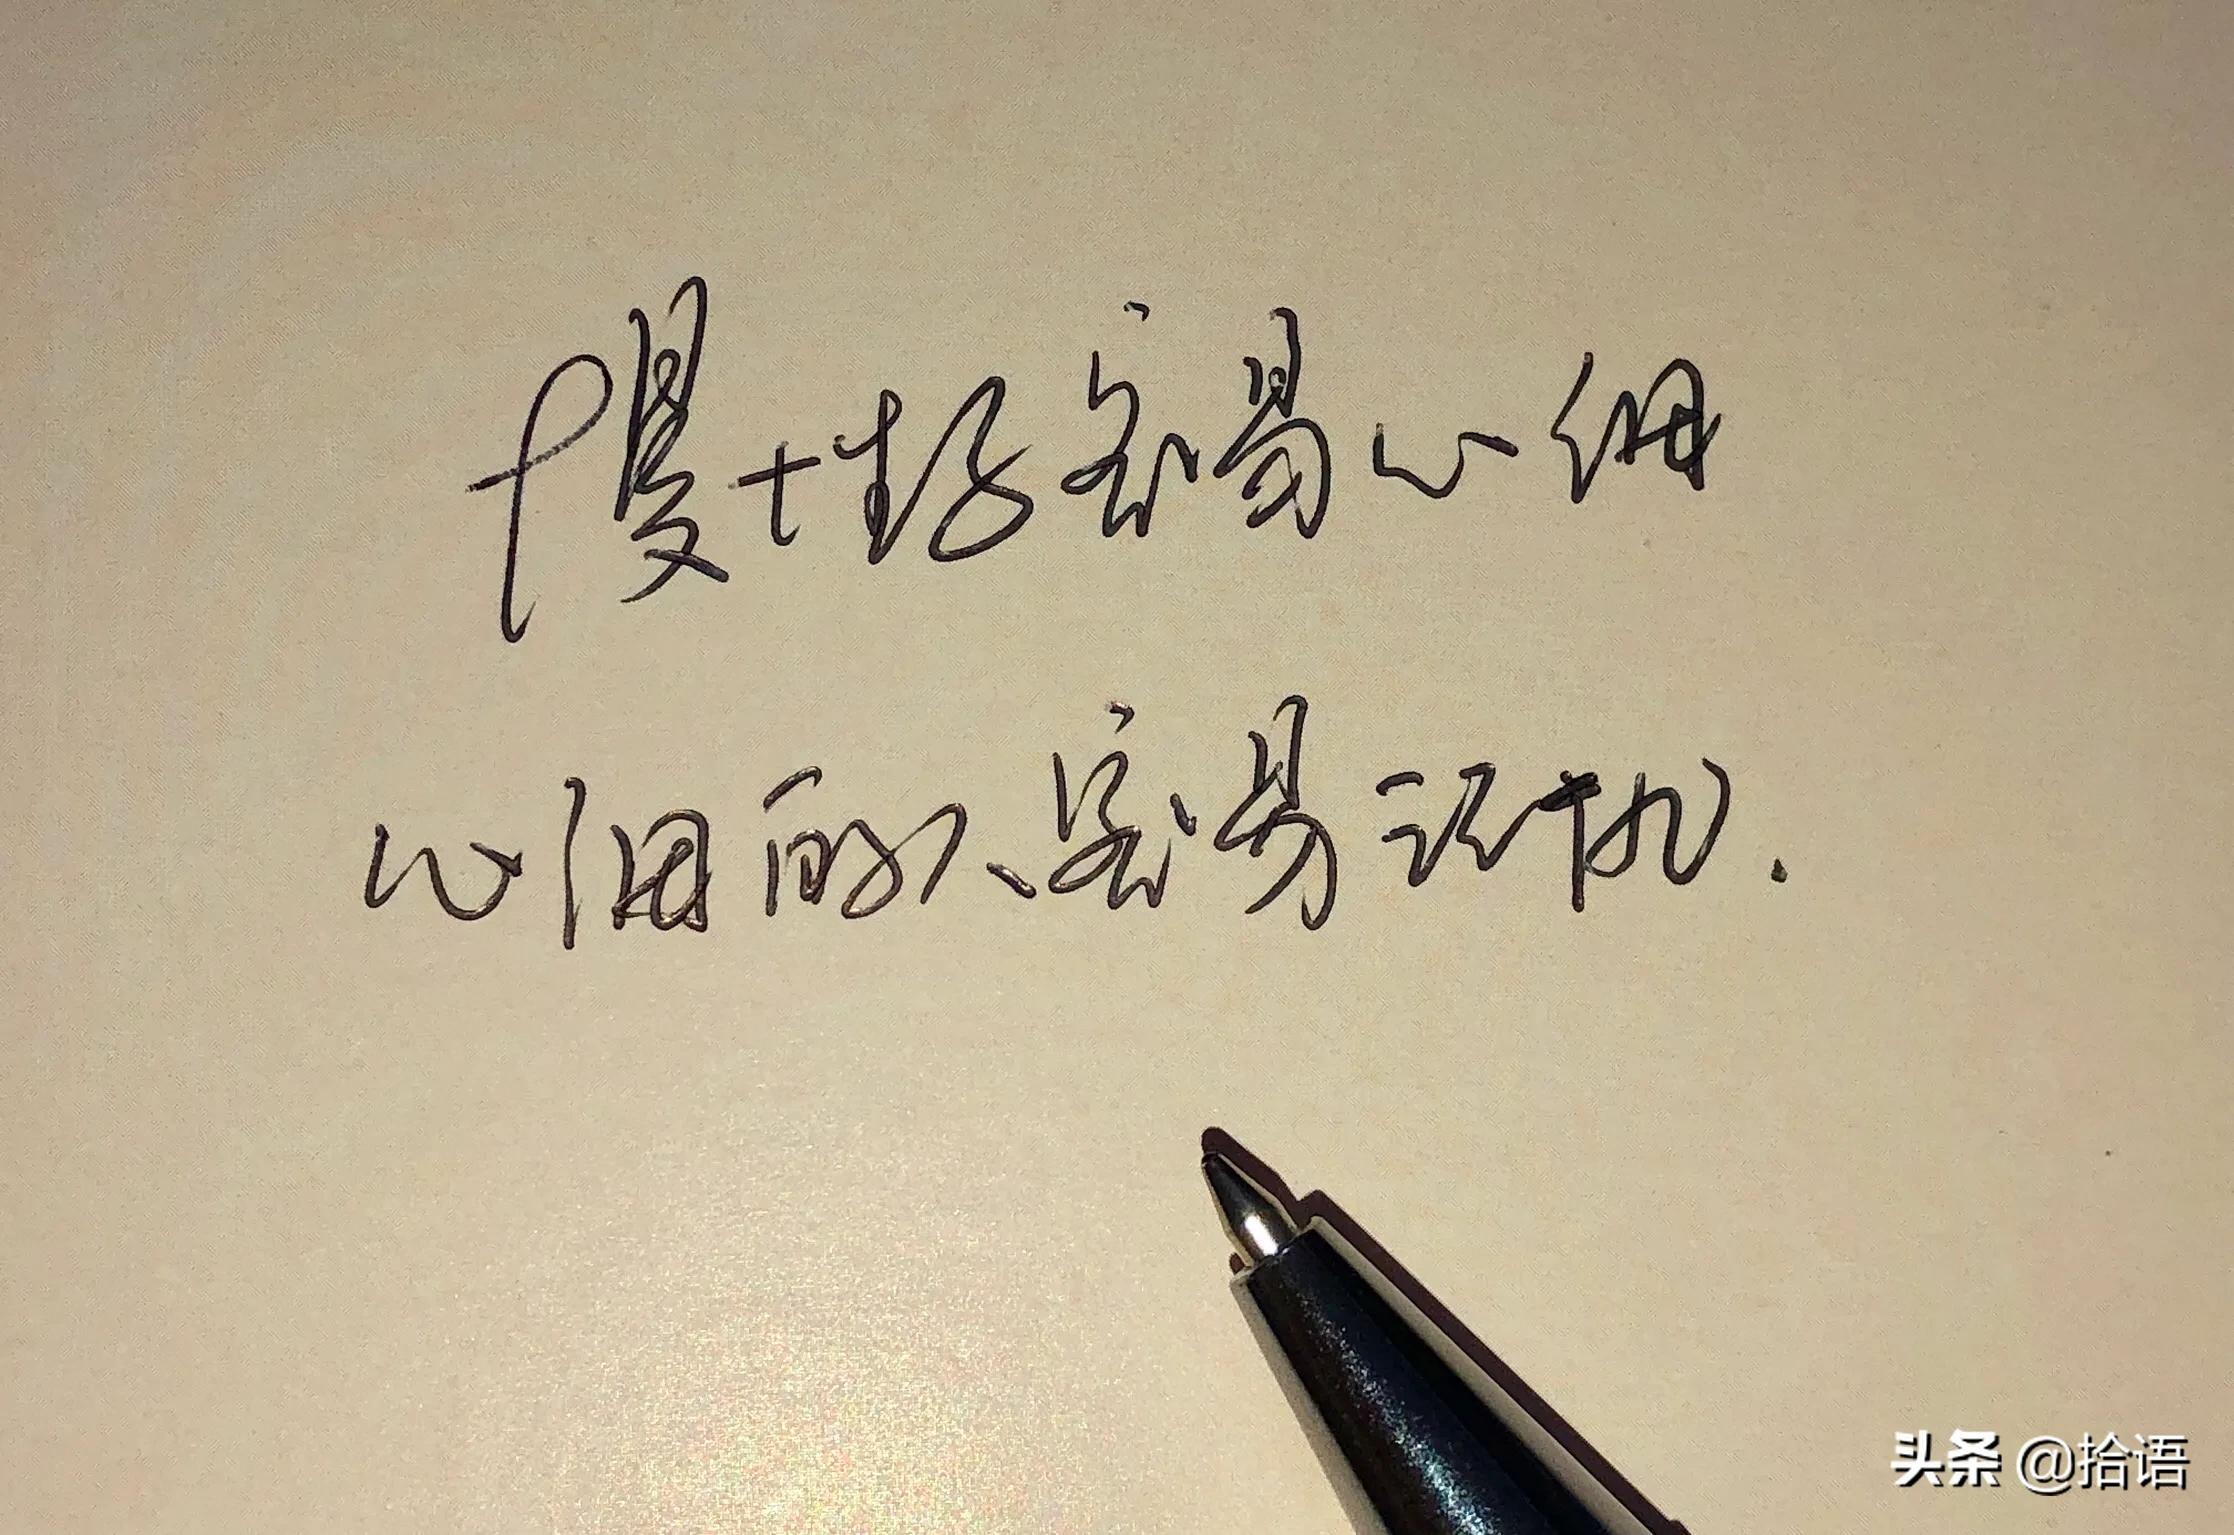 慢性子容易心细
心细的人容易记仇.
头条 @拾语